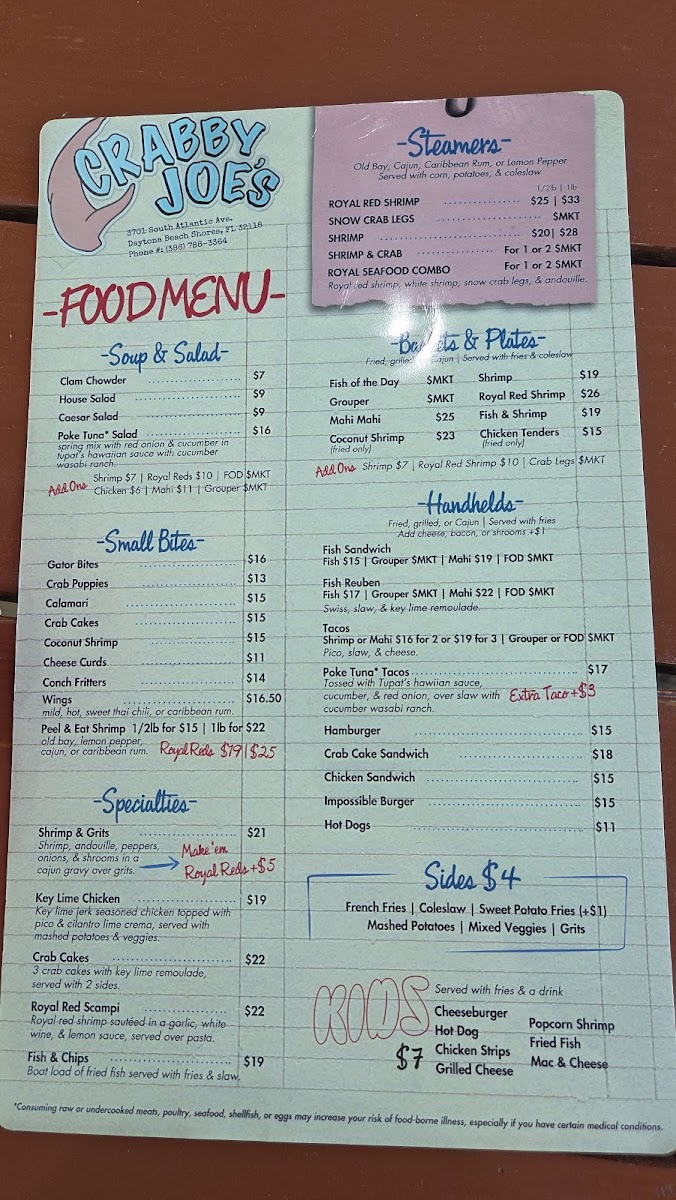 CRABBY
JOE'S
3701 South Atlantic Ave.
Daytona Beach Shores, FL 32118
Phone #: (386) 788-3364
-FOOD MENU-
-Steamers-
Old Bay, Cajun, Caribbean Rum, or Lemon Pepper
Served with corn, potatoes, & coleslaw
1/2lb | 1lb
ROYAL RED SHRIMP $25 | $33
SNOW CRAB LEGS $MKT
SHRIMP $20| $28
SHRIMP & CRAB For 1 or 2 $MKT
ROYAL SEAFOOD COMBO For 1 or 2 $MKT
Royal red shrimp, white shrimp, snow crab legs, & andouille.
-Soup & Salad-
Clam Chowder $7
House Salad $9
Caesar Salad $9
Poke Tuna* Salad $16
spring mix with red onion & cucumber in
tupat's hawaiian sauce with cucumber
wasabi ranch.
Add Ons Shrimp $7 | Royal Reds $10 | FOD $MKT
Chicken $6 | Mahi $11 | Grouper $MKT
-Small Bites-
Gator Bites $16
Crab Puppies $13
Calamari $15
Crab Cakes $15
Coconut Shrimp $15
Cheese Curds $11
Conch Fritters $14
Wings $16.50
mild, hot, sweet thai chili, or caribbean rum.
Peel & Eat Shrimp 1/2lb for $15 | 1lb for $22
old bay, lemon pepper,
cajun, or caribbean rum. Royal Reds $19 | $25
-Specialties-
Shrimp & Grits $21
Shrimp, andouille, peppers,
onions, & shrooms in a
cajun gravy over grits.
Make 'em
Royal Reds +$5
Key Lime Chicken $19
Key lime jerk seasoned chicken topped with
pico & cilantro lime crema, served with
mashed potatoes & veggies.
Crab Cakes $22
3 crab cakes with key lime remoulade,
served with 2 sides.
Royal Red Scampi $22
Royal red shrimp sautéed in a garlic, white
wine, & lemon sauce, served over pasta.
Fish & Chips $19
Boat load of fried fish served with fries & slaw.
& Plates-
Fried, | Served with fries & coleslaw
Fish of the Day $MKT
Grouper $MKT
Mahi Mahi $25
Coconut Shrimp $23
(fried only)
Shrimp $19
Royal Red Shrimp $26
Fish & Shrimp $19
Chicken Tenders $15
(fried only)
Add Ons Shrimp $7 | Royal Red Shrimp $10 | Crab Legs $MKT
-Handhelds-
Fried, grilled, or Cajun | Served with fries
Add cheese, bacon, or shrooms +$1
Fish Sandwich
Fish $15 | Grouper $MKT | Mahi $19 | FOD $MKT
Fish Reuben
Fish $17 | Grouper $MKT | Mahi $22 | FOD $MKT
Swiss, slaw, & key lime remoulade.
Tacos
Shrimp or Mahi $16 for 2 or $19 for 3 | Grouper or FOD $MKT
Pico, slaw, & cheese.
Poke Tuna* Tacos $17
Tossed with Tupat's hawiian sauce,
cucumber, & red onion, over slaw with
cucumber wasabi ranch.
Extra Taco +$3
Hamburger $15
Crab Cake Sandwich $18
Chicken Sandwich $15
Impossible Burger $15
Hot Dogs $11
Sides $4
French Fries | Coleslaw | Sweet Potato Fries (+$1)
Mashed Potatoes | Mixed Veggies | Grits
KIDS
$7
Served with fries & a drink
Cheeseburger
Hot Dog
Chicken Strips
Grilled Cheese
Popcorn Shrimp
Fried Fish
Mac & Cheese
*Consuming raw or undercooked meats, poultry, seafood, shellfish, or eggs may increase your risk of food-borne illness, especially if you have certain medical conditions.